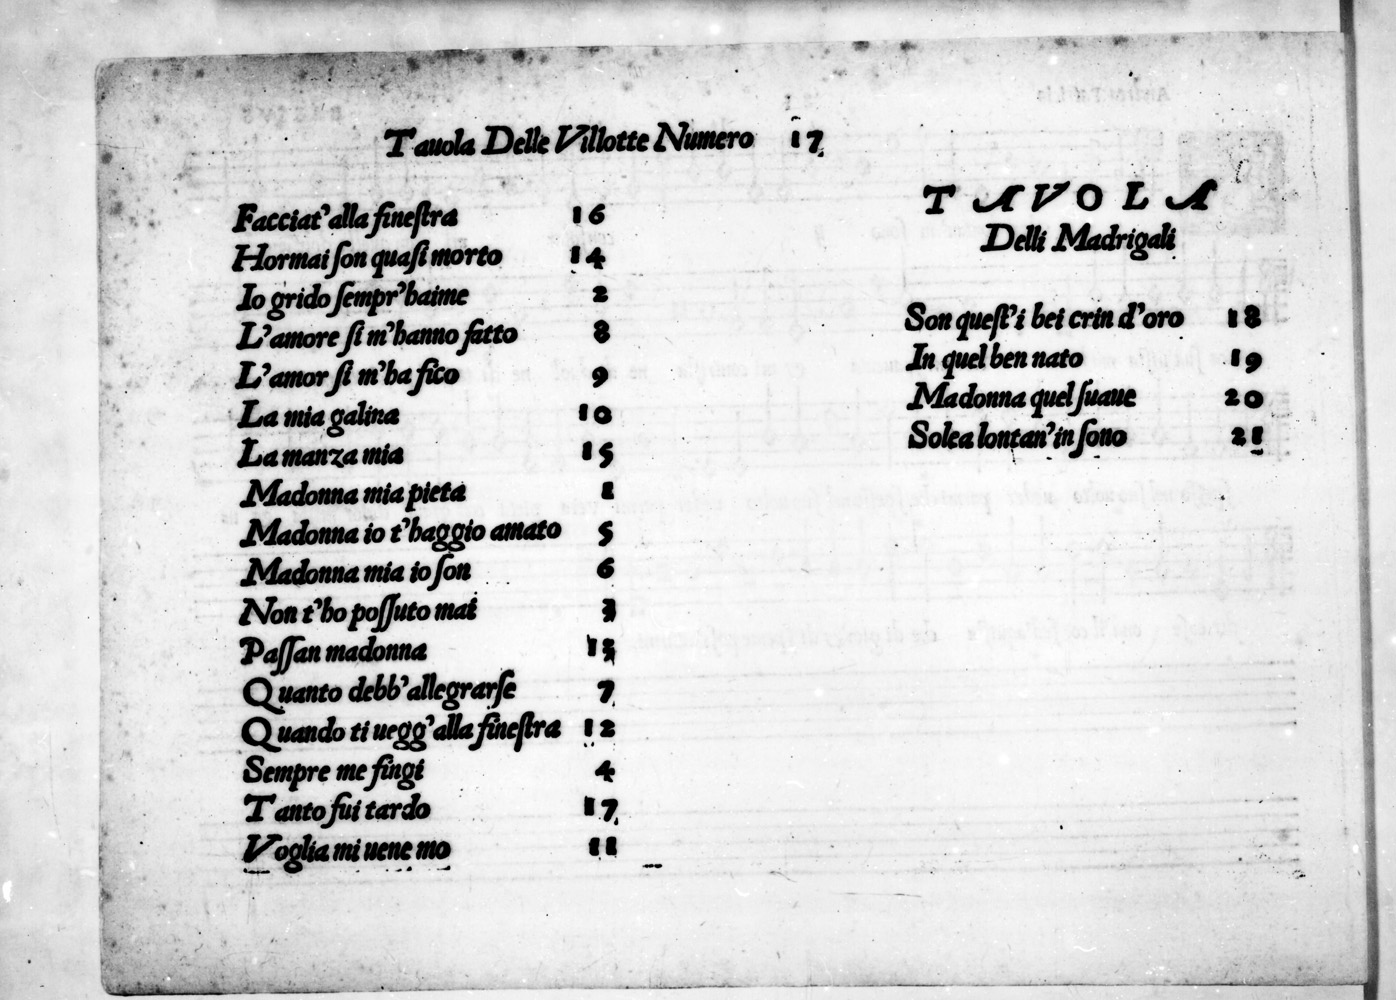 Tauola Delle Villotte Numero 17
Facciat'alla fineſtra 16
Hormai ſon quaſi morto 14
Io grido ſempr'haime 2
L'amore ſi m'hanno fatto 8
L'amor ſi m'ha fico 9
La mia galina 10
La manza mia 15
Madonna mia pieta 1
Madonna io t'haggio amato 5
Madonna mia io ſon 6
Non t'ho poſſuto mai 3
Paſſan madonna
Quanto debb'allegrarſe 7
Quando ti uegg'alla fineſtra 12
Sempre me fingi 4
Tanto fui tardo 17
Voglia mi uene mo 11
TAVOLA
Delli Madrigali
Son queſt'i bei crin d'oro 18
In quel ben nato 19
Madonna quel ſuaue 20
Solea lontan'in ſono 21